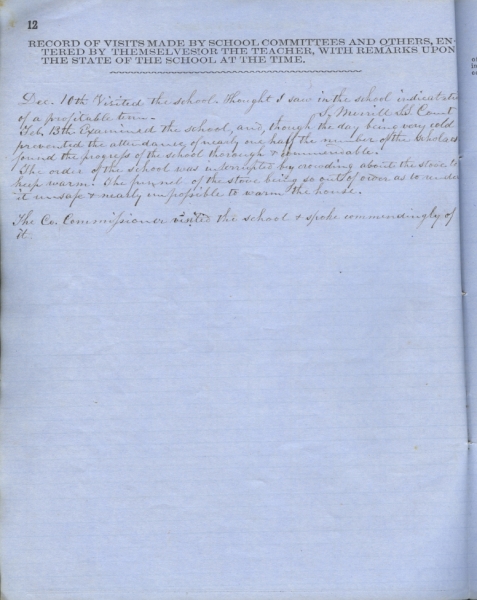 12
RECORD OF VISITS MADE BY SCHOOL COMMITTEES AND OTHERS, EN-
TERED BY THEMSELVES OR THE TEACHER, WITH REMARKS UPON
THE STATE OF THE SCHOOL AT THE TIME.
Dec. 10th Visited the school. Thought I saw in the school indications
of a profitable term. S. Merrill
Feb. 13th Examined the school, and, though the day being very cold
prevented the attendance of nearly one half the number of the Scholars
found the progress of the school thorough & commendable.
The order of the school was interrupted by crowding about the stove to
keep warm. The funnel of the stove being so out of order as to render
it unsafe & nearly impossible to warm the house.
The Co. Commissioner visited the school & spoke commendingly of
it.